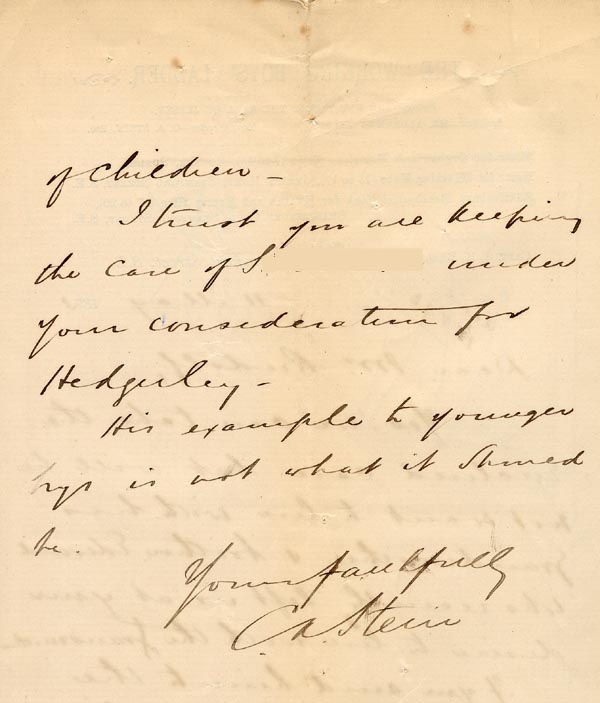 of children -
I trust you are keeping
the case of S. under
your consideration for
Hedgerley -
His example to younger
boys is not what it should
be.
Yours faithfully
C A Stein